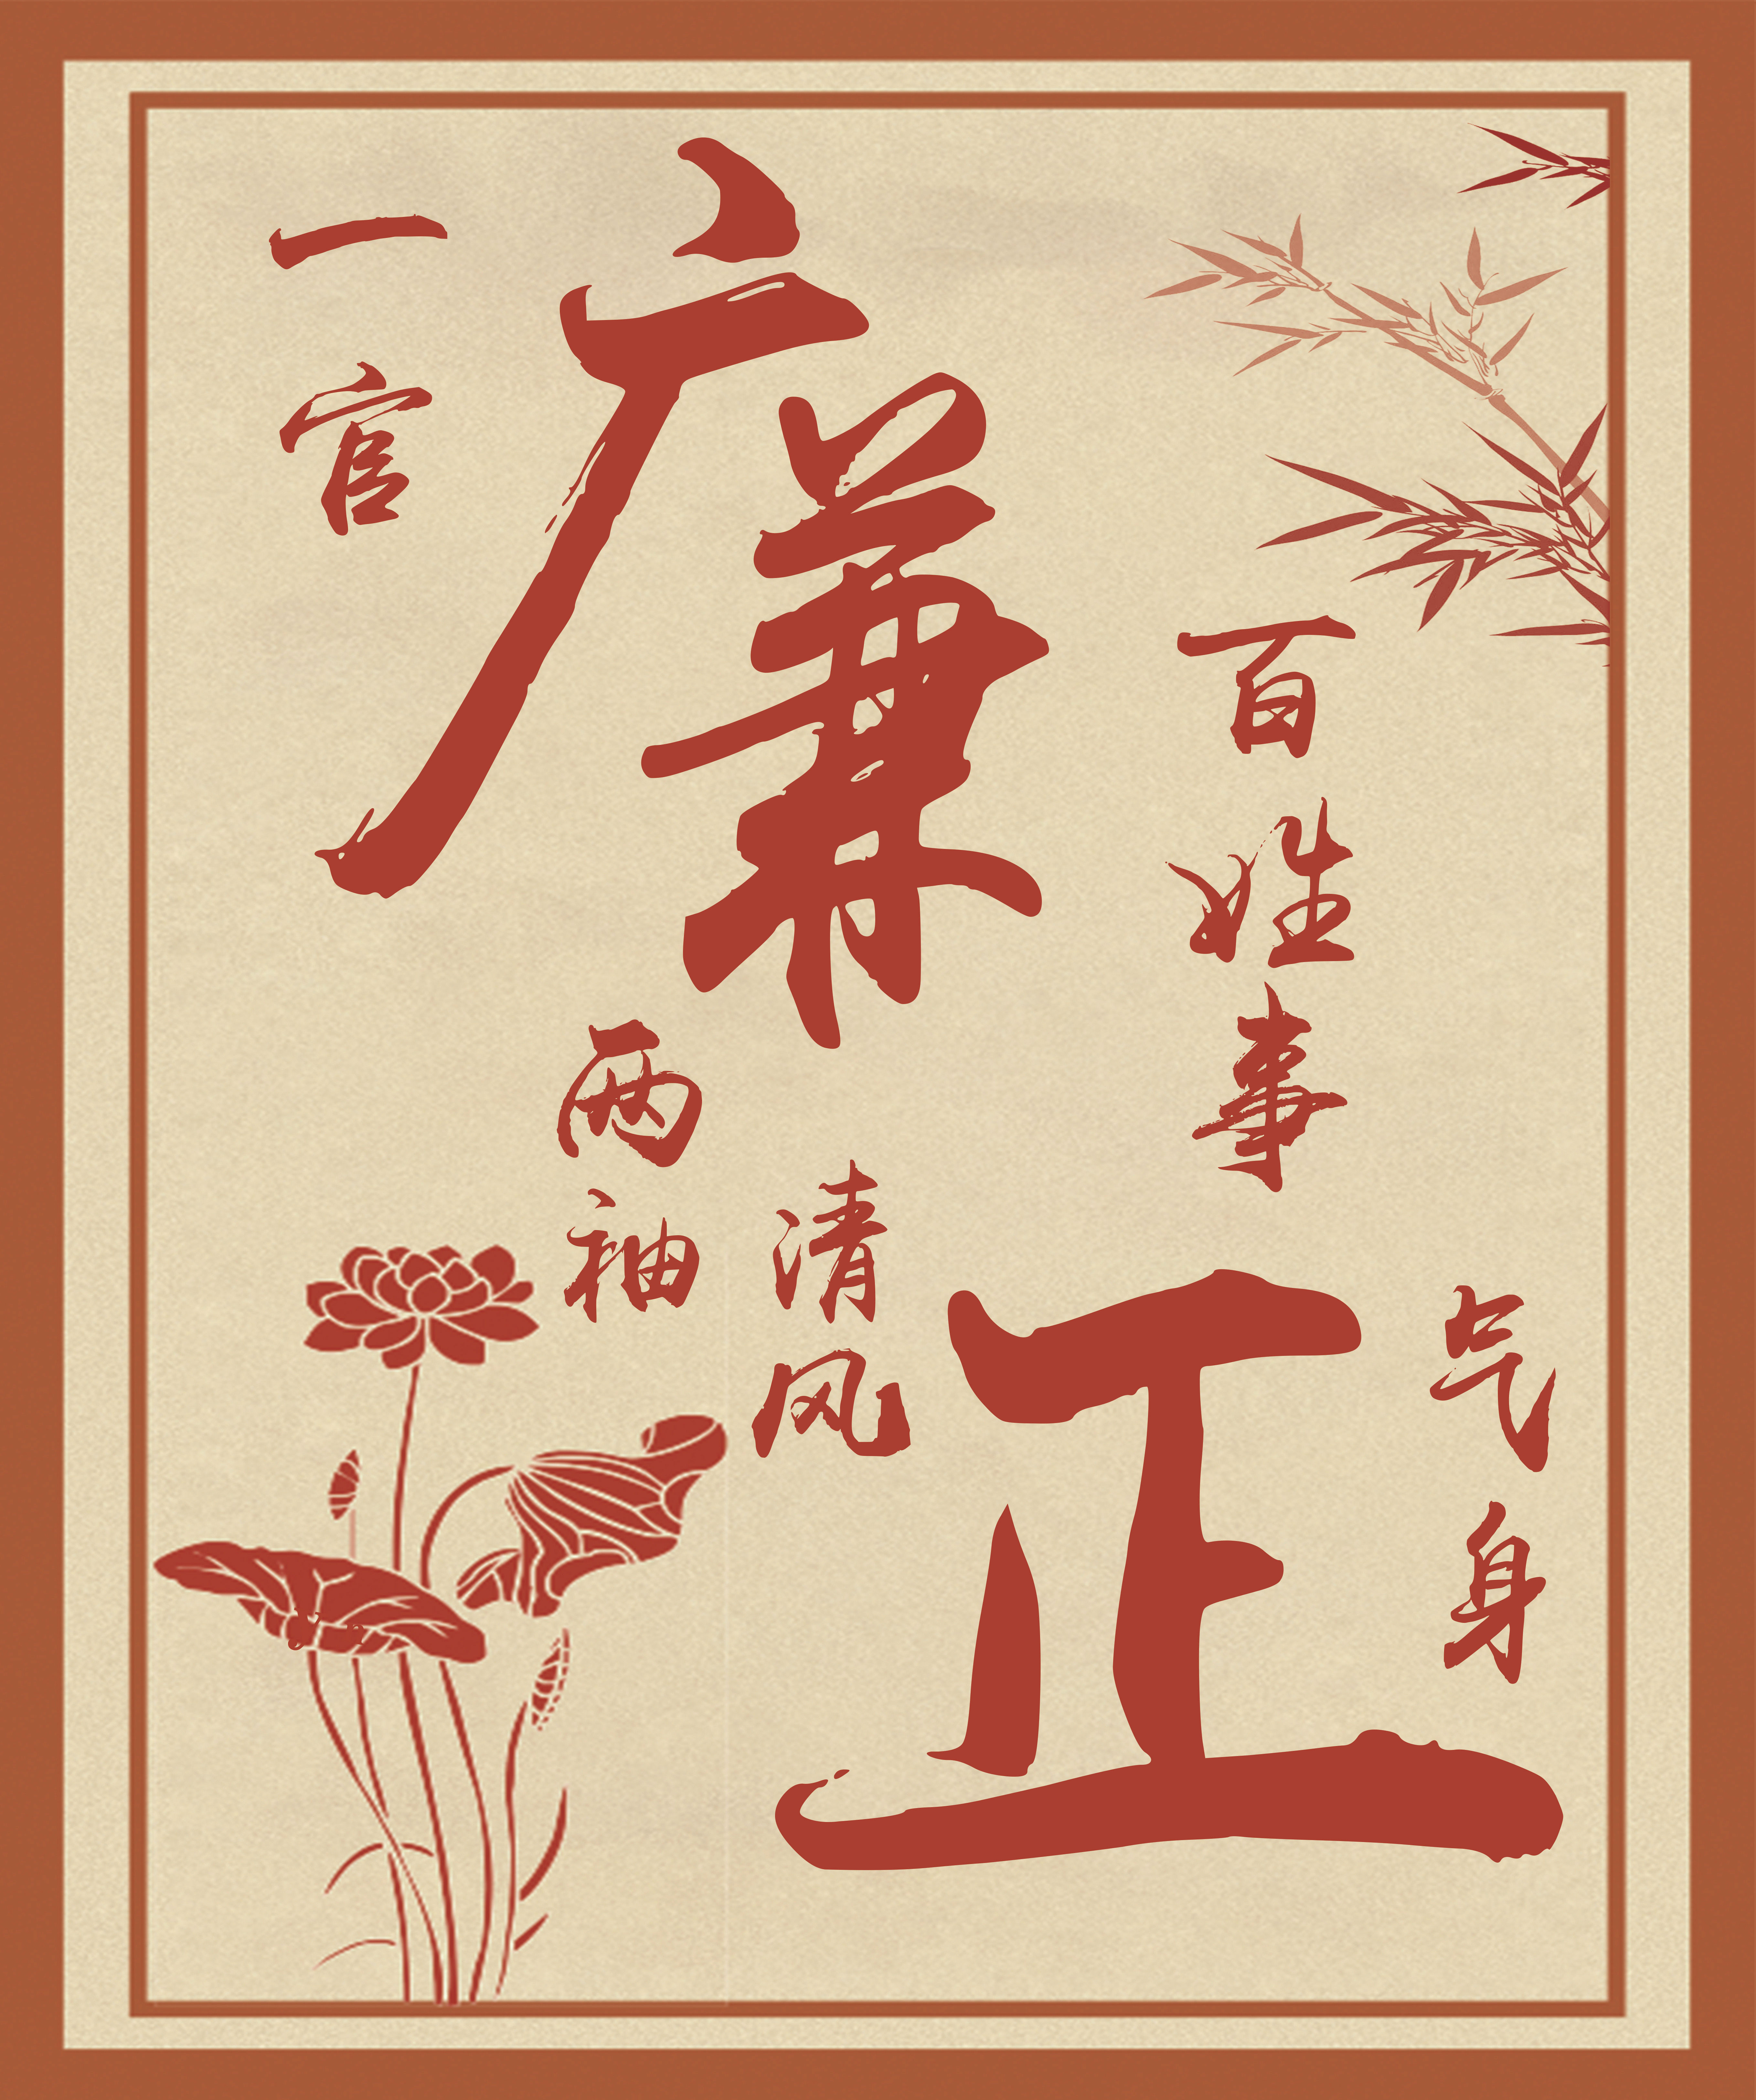 一官
廉
百姓事
两袖
清风
正
气身